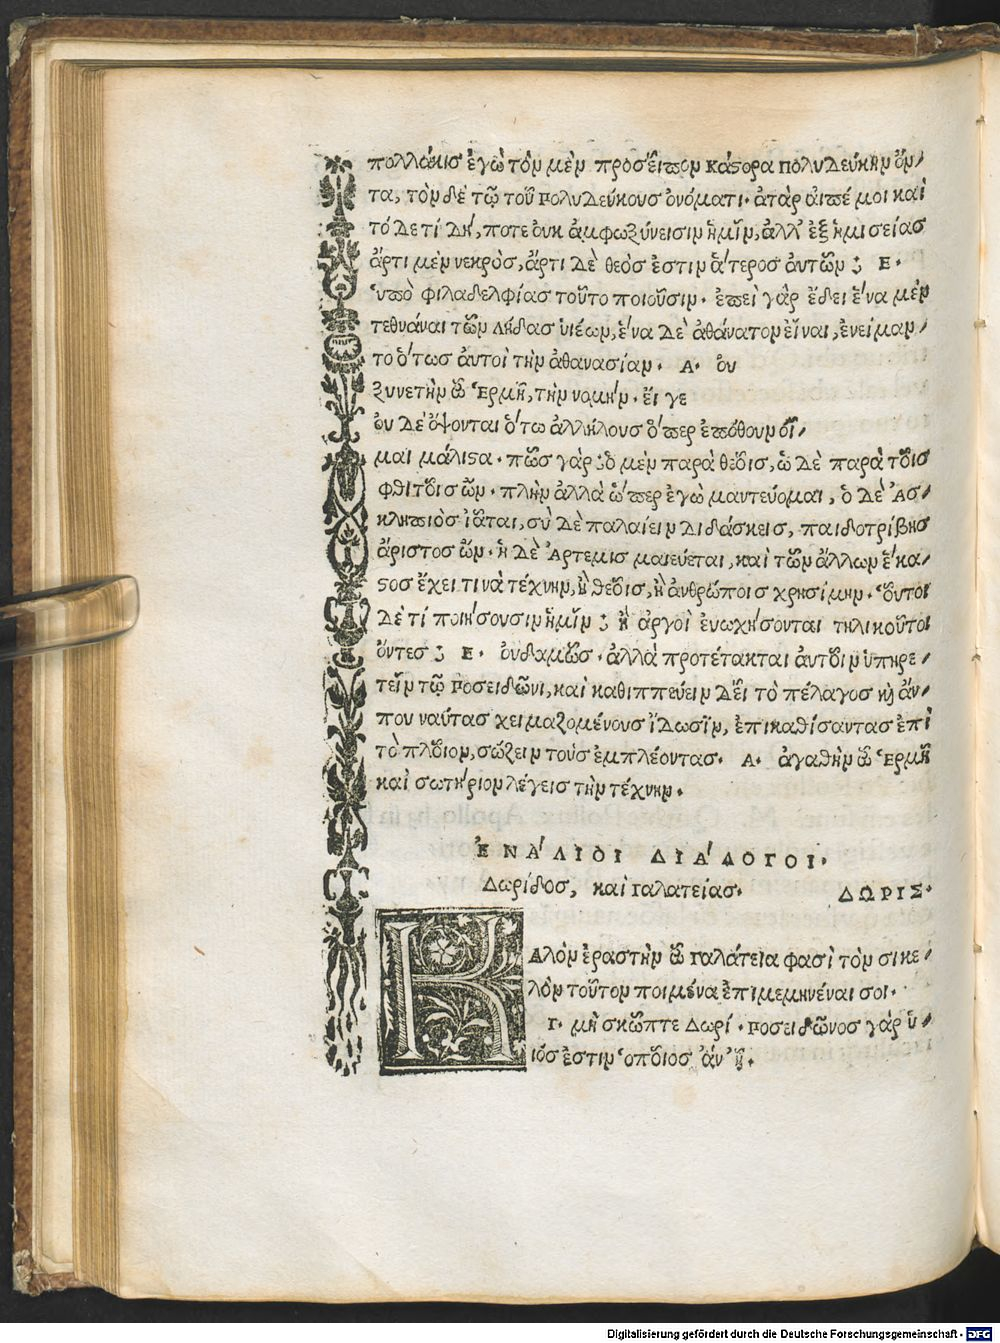 πολλάκισ ἐγὼ τὸν μὲν προσεῖπον κάστορα πολυδεύκην ὄν/
τα, τὸν δὲ τῷ τοῦ πολυδεύκουσ ὀνόματι. ἀτὰρ ἀιπέ μοι καὶ
τό δε τί δή, ποτε ουκ ἀμφωξύνεισιν ἡμῖν, ἀλλ' ἐξ ἡμισείασ
ἄρτι μὲν νεκρὸσ, ἄρτι δὲ θεόσ ἐστιν ἅτεροσ ἀυτῶν; Ε.
ὑπὸ φιλαδελφίασ τοῦτο ποιοῦσιν. ἐπεὶ γὰρ ἔδει ἕνα μὲν
τεθνάναι τῶν λήδασ ὑιέων, ἕνα δὲ ἀθάνατον εἶναι, ἐνείμαν/
το ὅτωσ ἀυτοὶ τὴν ἀθανασίαν. Α. ὀυ
ξυνετὴν ὦ Ἑρμῆ, τὴν νομήν. ἔι γε
ου δὲ ὄψονται ὅτω ἀλλήλουσ ὅπερ ἐπόθουν ὄι/
μαι μάλιστα. πῶσ γὰρ; ὁ μὲν παρὰ θεοῖσ, ὡ δὲ παρὰ τοῖσ
φθιτοῖσ ὤν. πλὴν ἀλλὰ ὥπερ ἐγὼ μαντεύομαι, ὁ δὲ Ἀσ/
κληπιὸσ ἰᾶται, σὺ δὲ παλαίειν διδάσκεισ, παιδοτρίβησ
ἄριστοσ ὤν. ἡ δὲ Ἄρτεμισ μαιεύεται, καὶ τῶν ἄλλων ἕκα/
στοσ ἔχει τινὰ τέχνην, ἢ θεοῖσ, ἢ ἀνθρώποισ χρησίμην. Ὅυτοι
δὲ τί ποιήσουσιν ἡμῖν; ἢ ἀργοὶ ἐυωχήσονται τηλικοῦτοι
ὄντεσ; Ε. ὀυδαμῶσ. ἀλλὰ προτέτακται ἀυτοῖν ὑπηρε/
τεῖν τῷ ποσειδῶνι, καὶ καθιππεύειν δεῖ τὸ πέλαγοσ καὶ ἄν/
που ναύτασ χειμαζομένουσ ἴδωσῖν, ἐπικαθίσαντασ ἐπὶ
τὸ πλοῖον, σώζειν τοὺσ ἐμπλέοντασ. Α. ἀγαθὴν ὦ Ἑρμῆ
καὶ σωτήριον λέγεισ τὴν τέχνην.
ἘΝΑΛΙΟΙ ΔΙΑΛΟΓΟΙ.
Δωρίδοσ, καὶ γαλατείασ. ΔΩΡΙΣ.
ΚΑλὸν ἐραστὴν ὦ γαλάτεια φασὶ τὸν σικε/
λὸν τοῦτον ποιμένα ἐπιμεμηνέναι σοι.
Γ. μὴ σκῶπτε Δωρί. ποσειδῶνοσ γάρ ὑ/
ιόσ ἐστιν ὁποῖοσ ἀν ᾖ.
Digitalisierung gefördert durch die Deutsche Forschungsgemeinschaft - DFG